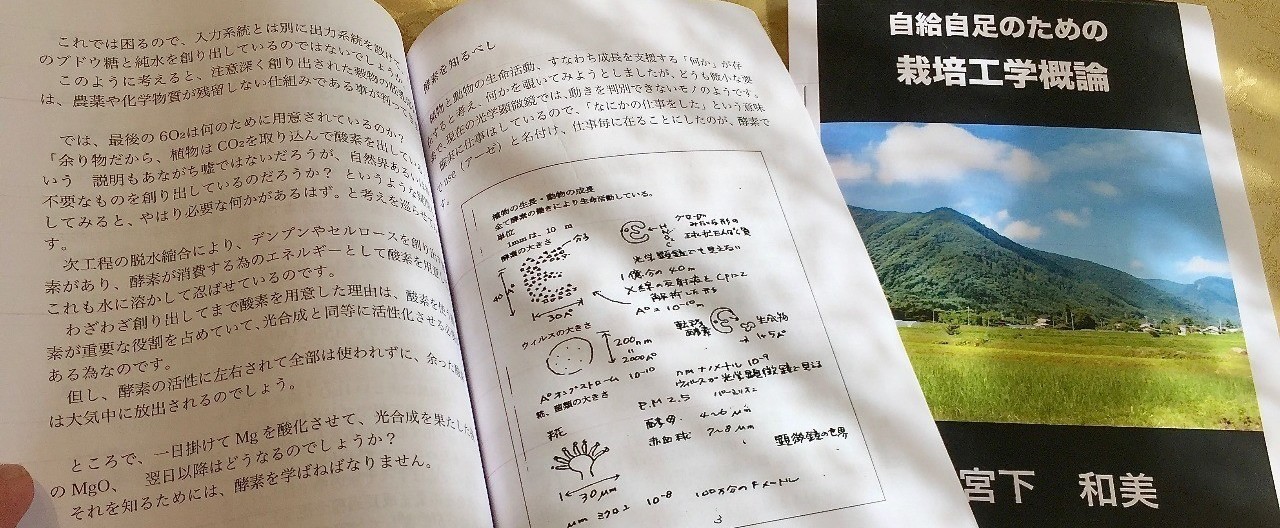 これでは困るので、入力系統とは別に出力系統を設け
のブドウ糖と純水を創り出しているのではないでしょうか
このように考えると、注意深く創り出された穀物の
は、農薬や化学物質が残留しない仕組みである事が判って
では、最後の 6O₂は何のために用意されているのか?
「余り物だから、植物は CO₂を取り込んで酸素を出している
いう 説明もあながち嘘ではないだろうが、自然界あるい
不要なものを創り出しているのだろうか? というような疑
してみると、やはり必要な何かがあるはず。と考えを巡らせ
す。
次工程の脱水縮合により、デンプンやセルロースを創り
素があり、酵素が消費する為のエネルギーとして酸素を用意し
これも水に溶かして忍ばせているのです。
わざわざ創り出してまで酸素を用意した理由は、酸素を
素が重要な役割を占めていて、光合成と同等に活性化させる
ある為なのです。
但し、酵素の活性に左右されて全部は使われずに、余った酸
は大気中に放出されるのでしょう。
ところで、一日掛けて Mg を酸化させて、光合成を果たした
の MgO、 翌日以降はどうなるのでしょうか?
それを知るためには、酵素を学ばねばなりません。
酵素を知るべし
植物と動物の生命活動、すなわち成長を支援する「何か」が存
すると考え、何かを覗いてみようとしましたが、どうも微小な要
で、現在の光学顕微鏡では、動きを判別できないモノのようです。
確実に仕事はしているので、「なにかの仕事をした」という意味
で use(アーゼ)と名付け、仕事毎に在ることにしたのが、酵素で
す。
植物の生長・動物の成長
全て酵素の働きにより生命活動している。
単位
1mmは、10 m
酵素の大きさ
分子
30A°
光学顕微鏡でも見えない
1億分の40m
X線の反射波と
解析した形
A°=10⁻¹⁰
酵素
生成物
ウイルスの大きさ
200nm
2000A°
A°オングストローム 10⁻¹⁰
nm ナノメートル 10⁻⁹
ウイルスが光学顕微鏡で見える
糀、菌類の大きさ
P.M 2.5
糀
酵母 4~6 μm
赤血球 7~8 μm
顕微鏡の世界
30μm
μm ミクロン 10⁻⁸ 100万分の1メートル
3
自給自足のための
栽培工学概論
宮下 和美